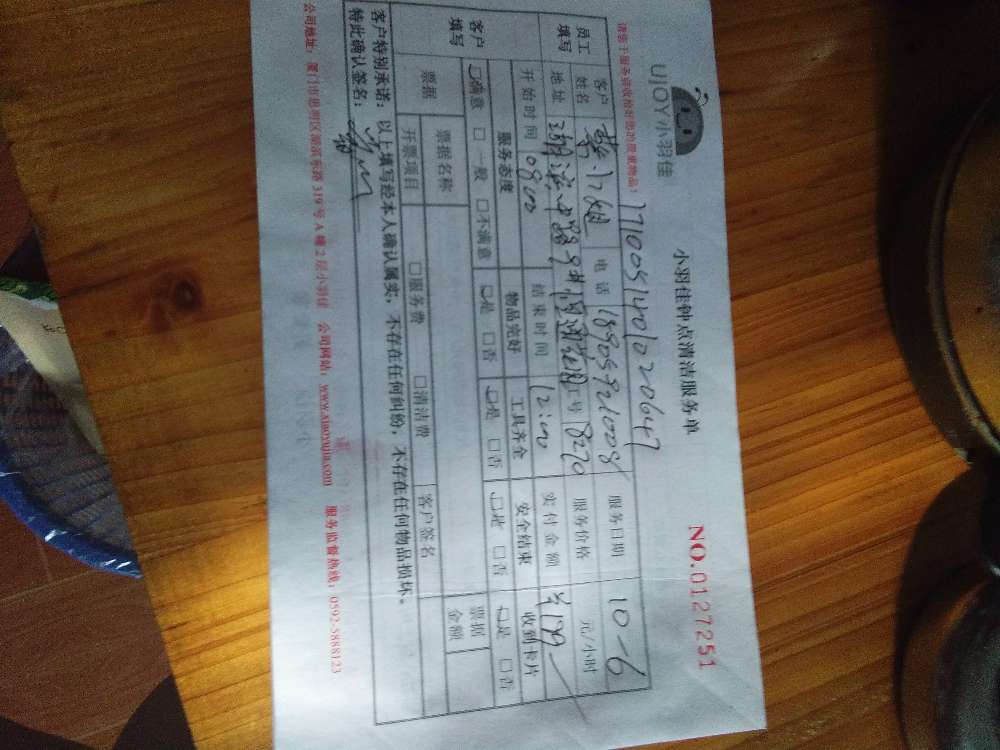 UJOY小羽佳
小羽佳钟点清洁服务单
NO.0127251
请您于服务前收拾好您的贵重物品!
171005140102064​7
员工填写 客户姓名 小姐 电话 18905921008 服务日期 10-6
地址 湖滨中路 工号 8270 服务价格 元/小时
开始时间 0800 结束时间 12:00 实付金额
客户填写 服务态度 物品完好 工具齐全 安全结束 收到卡片
□满意 □一般 □不满意 □是 □否 □是 □否 □是 □否 □是 □否
票据 票据名称 客户签名 票据金额
开票项目 □服务费 □清洁费
客户特别承诺:以上填写经本人确认属实,不存在任何纠纷,不存在任何物品损坏。
特此确认签名:
公司地址:厦门市思明区湖滨东路319号A幢2层小羽佳 公司网站:www.xiaoyujia.com 服务监督热线:0592-5888123